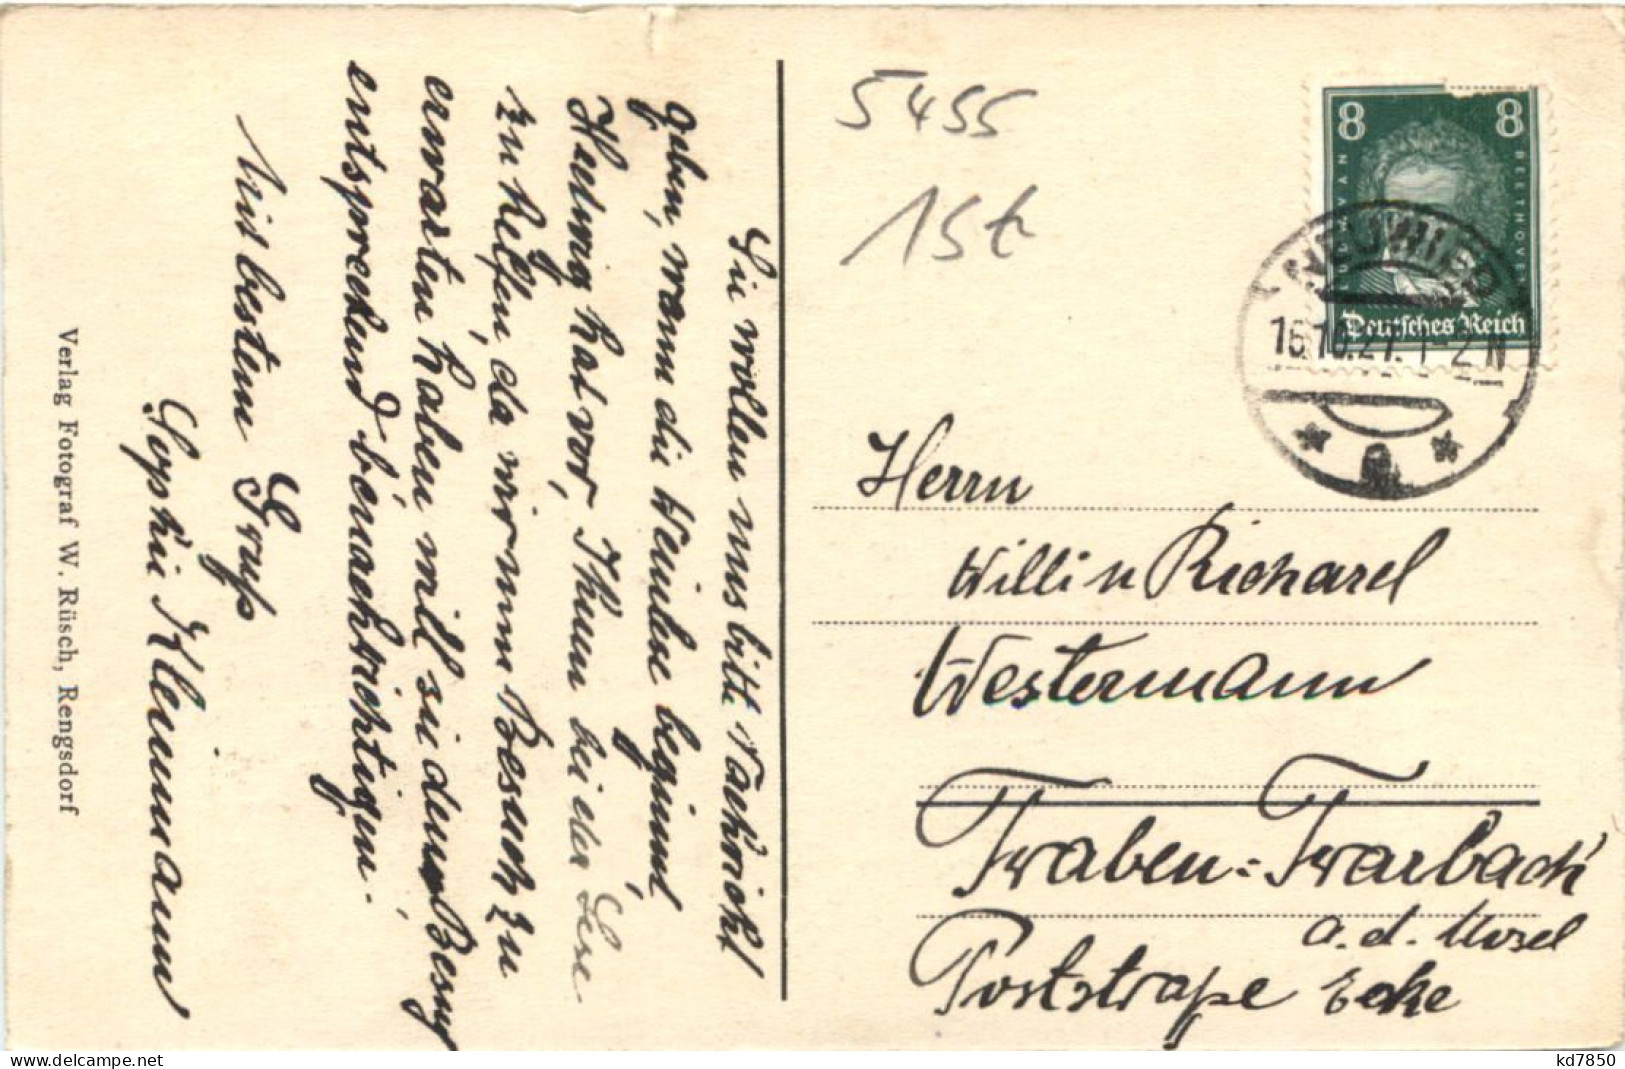 Sie wollen uns bitte Nachricht
geben, wann die Weinlese beginnt
Hedwig hat vor, Ihnen bei der Lese
zu helfen, da wir nun Besuch zu
erwarten haben will sie den Besuch
entsprechend benachrichtigen.
Mit bestem Gruß
Sophie Kleinmann
Verlag Fotograf W. Rüsch, Rengsdorf
5455
15t
8 8
BEETHOVEN
Deutsches Reich
NEUWIED
16.10.27. 1-2 N
Herrn
Willi u Richard
Westermann
Traben-Trarbach
a.d. Mosel
Poststraße Ecke
kd7850